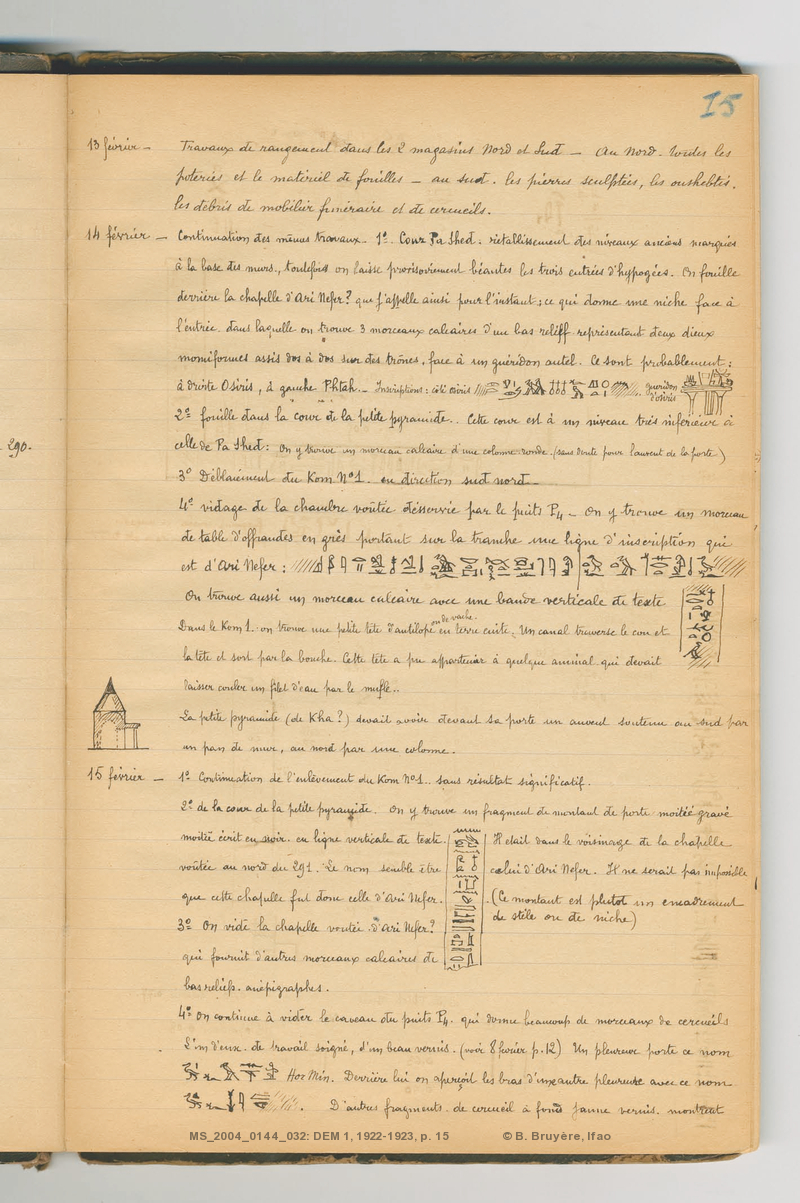 15
13 février — Travaux de rangement dans les 2 magasins Nord et Sud — Au Nord. toutes les
poteries et le matériel de fouilles — au sud. les pierres sculptées, les oushebtis,
les débris de mobilier funéraire et de cercueils.
14 février — Continuation des mêmes travaux. 1º. Cour Pa Shed. rétablissement des niveaux anciens marqués
à la base des murs, toutefois on laisse provisoirement béantes les trois entrées d'hypogées. On fouille
derrière la chapelle d'Ari Nefer? que j'appelle ainsi pour l'instant; ce qui donne une niche face à
l'entrée dans laquelle on trouve 3 morceaux calcaires d'un bas relief représentant deux dieux
momiformes assis dos à dos sur des trônes, face à un guéridon autel. Ce sont probablement:
à droite Osiris, à gauche Phtah. — Inscriptions: côté Osiris guéridon d'osiris
2º fouille dans la cour de la petite pyramide.. Cette cour est à un niveau très inférieur à
290.
celle de Pa Shed: On y trouve un morceau calcaire d'une colonne ronde (sans doute pour l'auvent de la porte)
3º Déblaiement du Kom Nº1. en direction sud nord —
4º vidage de la chambre voûtée desservie par le puits P4 — On y trouve un morceau
de table d'offrandes en grès portant sur la tranche une ligne d'inscription qui
est d'Ari Nefer:
On trouve aussi un morceau calcaire avec une bande verticale de texte
Dans le Kom 1. on trouve une petite tête d'antilope ou de vache en terre cuite. Un canal traverse le cou et
la tête et sort par la bouche. Cette tête a pu appartenir à quelque animal qui devait
laisser couler un filet d'eau par le mufle..
La petite pyramide (de Kha?) devait avoir devant sa porte un auvent soutenu au sud par
un pan de mur, au nord par une colonne.
15 février — 1º Continuation de l'enlèvement du Kom Nº1.. sans résultat significatif.
2º de la cour de la petite pyramide. On y trouve un fragment de montant de porte moitié gravé
moitié écrit en noir. en ligne verticale de texte. Il était dans le voisinage de la chapelle
voûtée au nord du 291. Le nom semble être celui d'Ari Nefer. Il ne serait pas impossible
que cette chapelle fut donc celle d'Ari Nefer. (Ce montant est plutot un encadrement
de stèle ou de niche)
3º On vide la chapelle voutée d'Ari Nefer?
qui fournit d'autres morceaux calcaires de
bas reliefs. anépigraphes.
4º On continue à vider le caveau du puits P4. qui donne beaucoup de morceaux de cercueils
L'un d'eux. de travail soigné, d'un beau vernis. (voir 8 février p.12) Un pleureur porte ce nom
Hor Min. Derrière lui on aperçoit les bras d'une autre pleureuse avec ce nom
D'autres fragments de cercueil à fond jaune vernis. montrent
MS_2004_0144_032: DEM 1, 1922-1923, p. 15 © B. Bruyère, Ifao